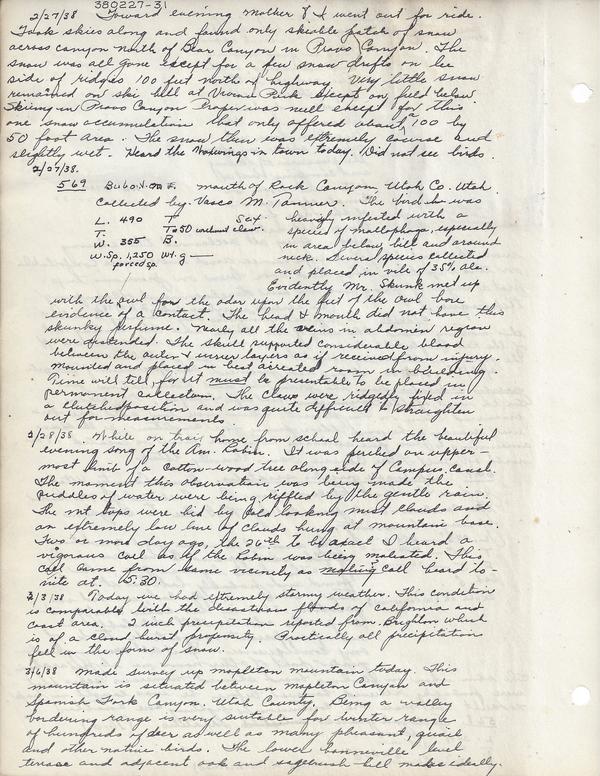 380227-31
2/27/38 Toward evening mother & I went out for ride.
Took skies along and found only skeable patch of snow
across canyon north of Bear Canyon in Provo Canyon. The
snow was all gone except for a few snow drafts on lee
side of ridges 100 feet north of highway. Very little snow
remained on ski hill at Vivian Park except on field below.
Skiing in Provo Canyon Proper was null except for this
one snow accumulation that only offered about a 100 by
50 foot area. The snow then was extremely course and
slightly wet. Heard the Waxwings in town today. Did not see birds.
2/27/38.
569 Bubo. V. om F. mouth of Rock Canyon, Utah Co. Utah.
collected by Vasco M. Tanner. The bird was
L. 490 T Sex heavily infested with a
T. To 50 without claw. species of mallophaga, especially
W. 355 B. in area below bill and around
W. Sp. 1,250 Wt. g — neck. Several species collected
forced sp. and placed in vile of 35% alc.
Evidently Mr. Skunk met up
with the owl for the odor upon the feet of the owl bore
evidence of a contact. The head & mouth did not have this
skunky perfume. Nearly all the veins in abdomen region
were distended. The skull supported considerable blood
between the outer & inner layers as if received from injury.
Mounted and placed in best aireated room in building.
Time will tell, for it must be presentable to be placed in
permanent collection. The claws were ridgedly fixed in
a clutched position and was quite difficult to straighten
out for measurements.
2/28/38 While on trail home from school heard the beautiful
evening song of the Am. Robin. It was perched on upper-
most limb of a cotton-wood tree along side of Campus Canal.
The moment this observation was being made the
puddles of water were being riffled by the gentle rain.
The mt tops were hid by cold looking mist clouds and
an extremely low line of clouds hung at mountain base.
Two or more day ago, the 26th to be exact I heard a
vigorous call as if the Robin was being molested. This
call came from same vicinity as mating call heard to-
nite at 5:30.
3/3/38 Today we had extremely stormy weather. This condition
is comparable with the disastrous floods of California and
coast area. 2 inch precipitation reported from Brighton which
is of a cloud burst propensity. Practically all precipitation
fell in the form of snow.
3/6/38 Made survey up mapleton mountain today. This
mountain is situated between Mapleton Canyon and
Spanish Fork Canyon, Utah County. Being a valley
bordering range is very suitable for winter range
of hundreds of deer as well as many pheasant, quail
and other native birds. The lower bonneville level
terrace and adjacent oak and sagebrush hill makes ideally.